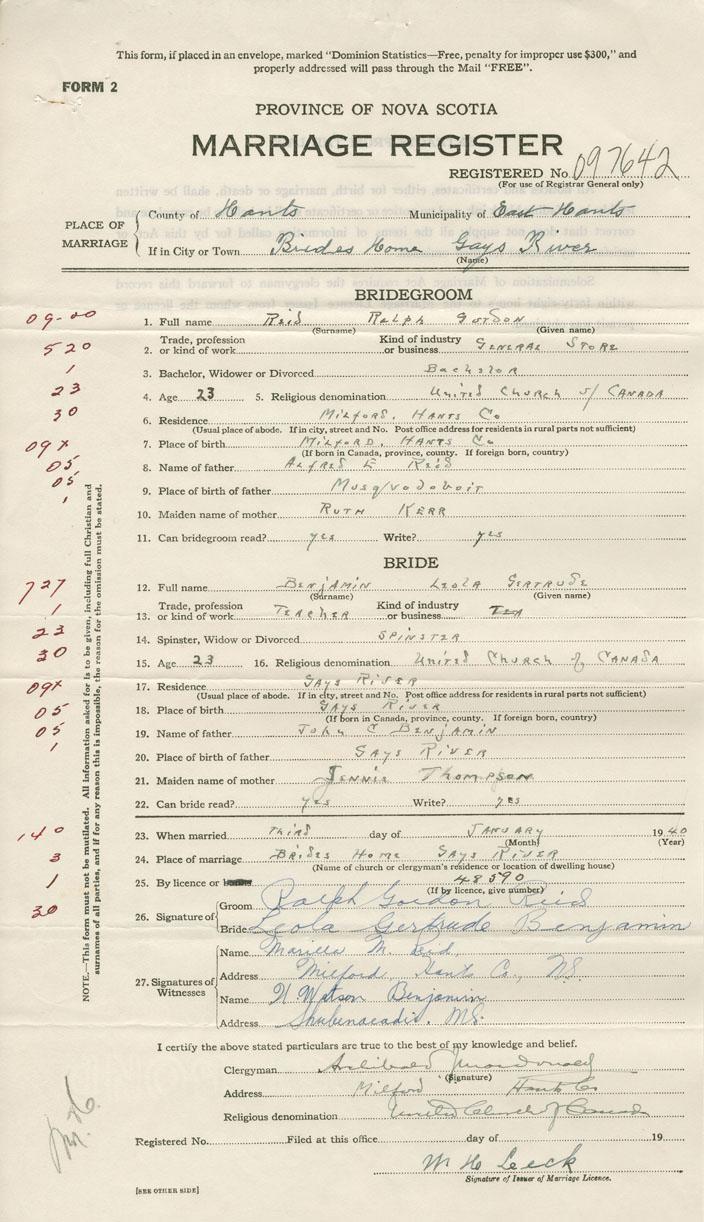 This form, if placed in an envelope, marked "Dominion Statistics—Free, penalty for improper use $300," and
properly addressed will pass through the Mail "FREE".
FORM 2
PROVINCE OF NOVA SCOTIA
MARRIAGE REGISTER
REGISTERED No. 097642
(For use of Registrar General only)
PLACE OF MARRIAGE
County of Hants Municipality of East Hants
If in City or Town Brides Home Gays River
(Name)
BRIDEGROOM
09-00
1. Full name Reid Ralph Gordon
(Surname) (Given name)
520
2. Trade, profession or kind of work Kind of industry or business General Store
1
3. Bachelor, Widower or Divorced Bachelor
23
4. Age 23 5. Religious denomination United Church of Canada
30
6. Residence Milford, Hants Co
(Usual place of abode. If in city, street and No. Post office address for residents in rural parts not sufficient)
09x
7. Place of birth Milford, Hants Co
(If born in Canada, province, county. If foreign born, country)
05
8. Name of father Alfred E Reid
05
9. Place of birth of father Musquodoboit
1
10. Maiden name of mother Ruth Kerr
11. Can bridegroom read? yes Write? yes
BRIDE
727
12. Full name Benjamin Leola Gertrude
(Surname) (Given name)
1
13. Trade, profession or kind of work Teacher Kind of industry or business Tea
23
14. Spinster, Widow or Divorced Spinster
30
15. Age 23 16. Religious denomination United Church of Canada
09x
17. Residence Gays River
(Usual place of abode. If in city, street and No. Post office address for residents in rural parts not sufficient)
05
18. Place of birth Gays River
(If born in Canada, province, county. If foreign born, country)
05
19. Name of father John C Benjamin
1
20. Place of birth of father Gays River
21. Maiden name of mother Jennie Thompson
22. Can bride read? yes Write? yes
140
23. When married Third day of January 1940
(Month) (Year)
3
24. Place of marriage Brides Home Gays River
(Name of church or clergyman's residence or location of dwelling house)
1
25. By licence or 48590
(If by licence, give number)
30
26. Signature of
Groom Ralph Gordon Reid
Bride Leola Gertrude Benjamin
27. Signatures of Witnesses
Name Marilla M. Reid
Address Milford, Hants Co., N.S.
Name H. Watson Benjamin
Address Shubenacadie. N.S.
I certify the above stated particulars are true to the best of my knowledge and belief.
Clergyman Archibald Macdonald
(Signature)
Address Milford Hants Co
Religious denomination United Church of Canada
Registered No. Filed at this office day of 19
W H Leck
Signature of Issuer of Marriage Licence.
[SEE OTHER SIDE]
NOTE.—This form must not be mutilated. All information asked for is to be given, including full Christian and
surnames of all parties, and if for any reason this is impossible, the reason for the omission must be stated.